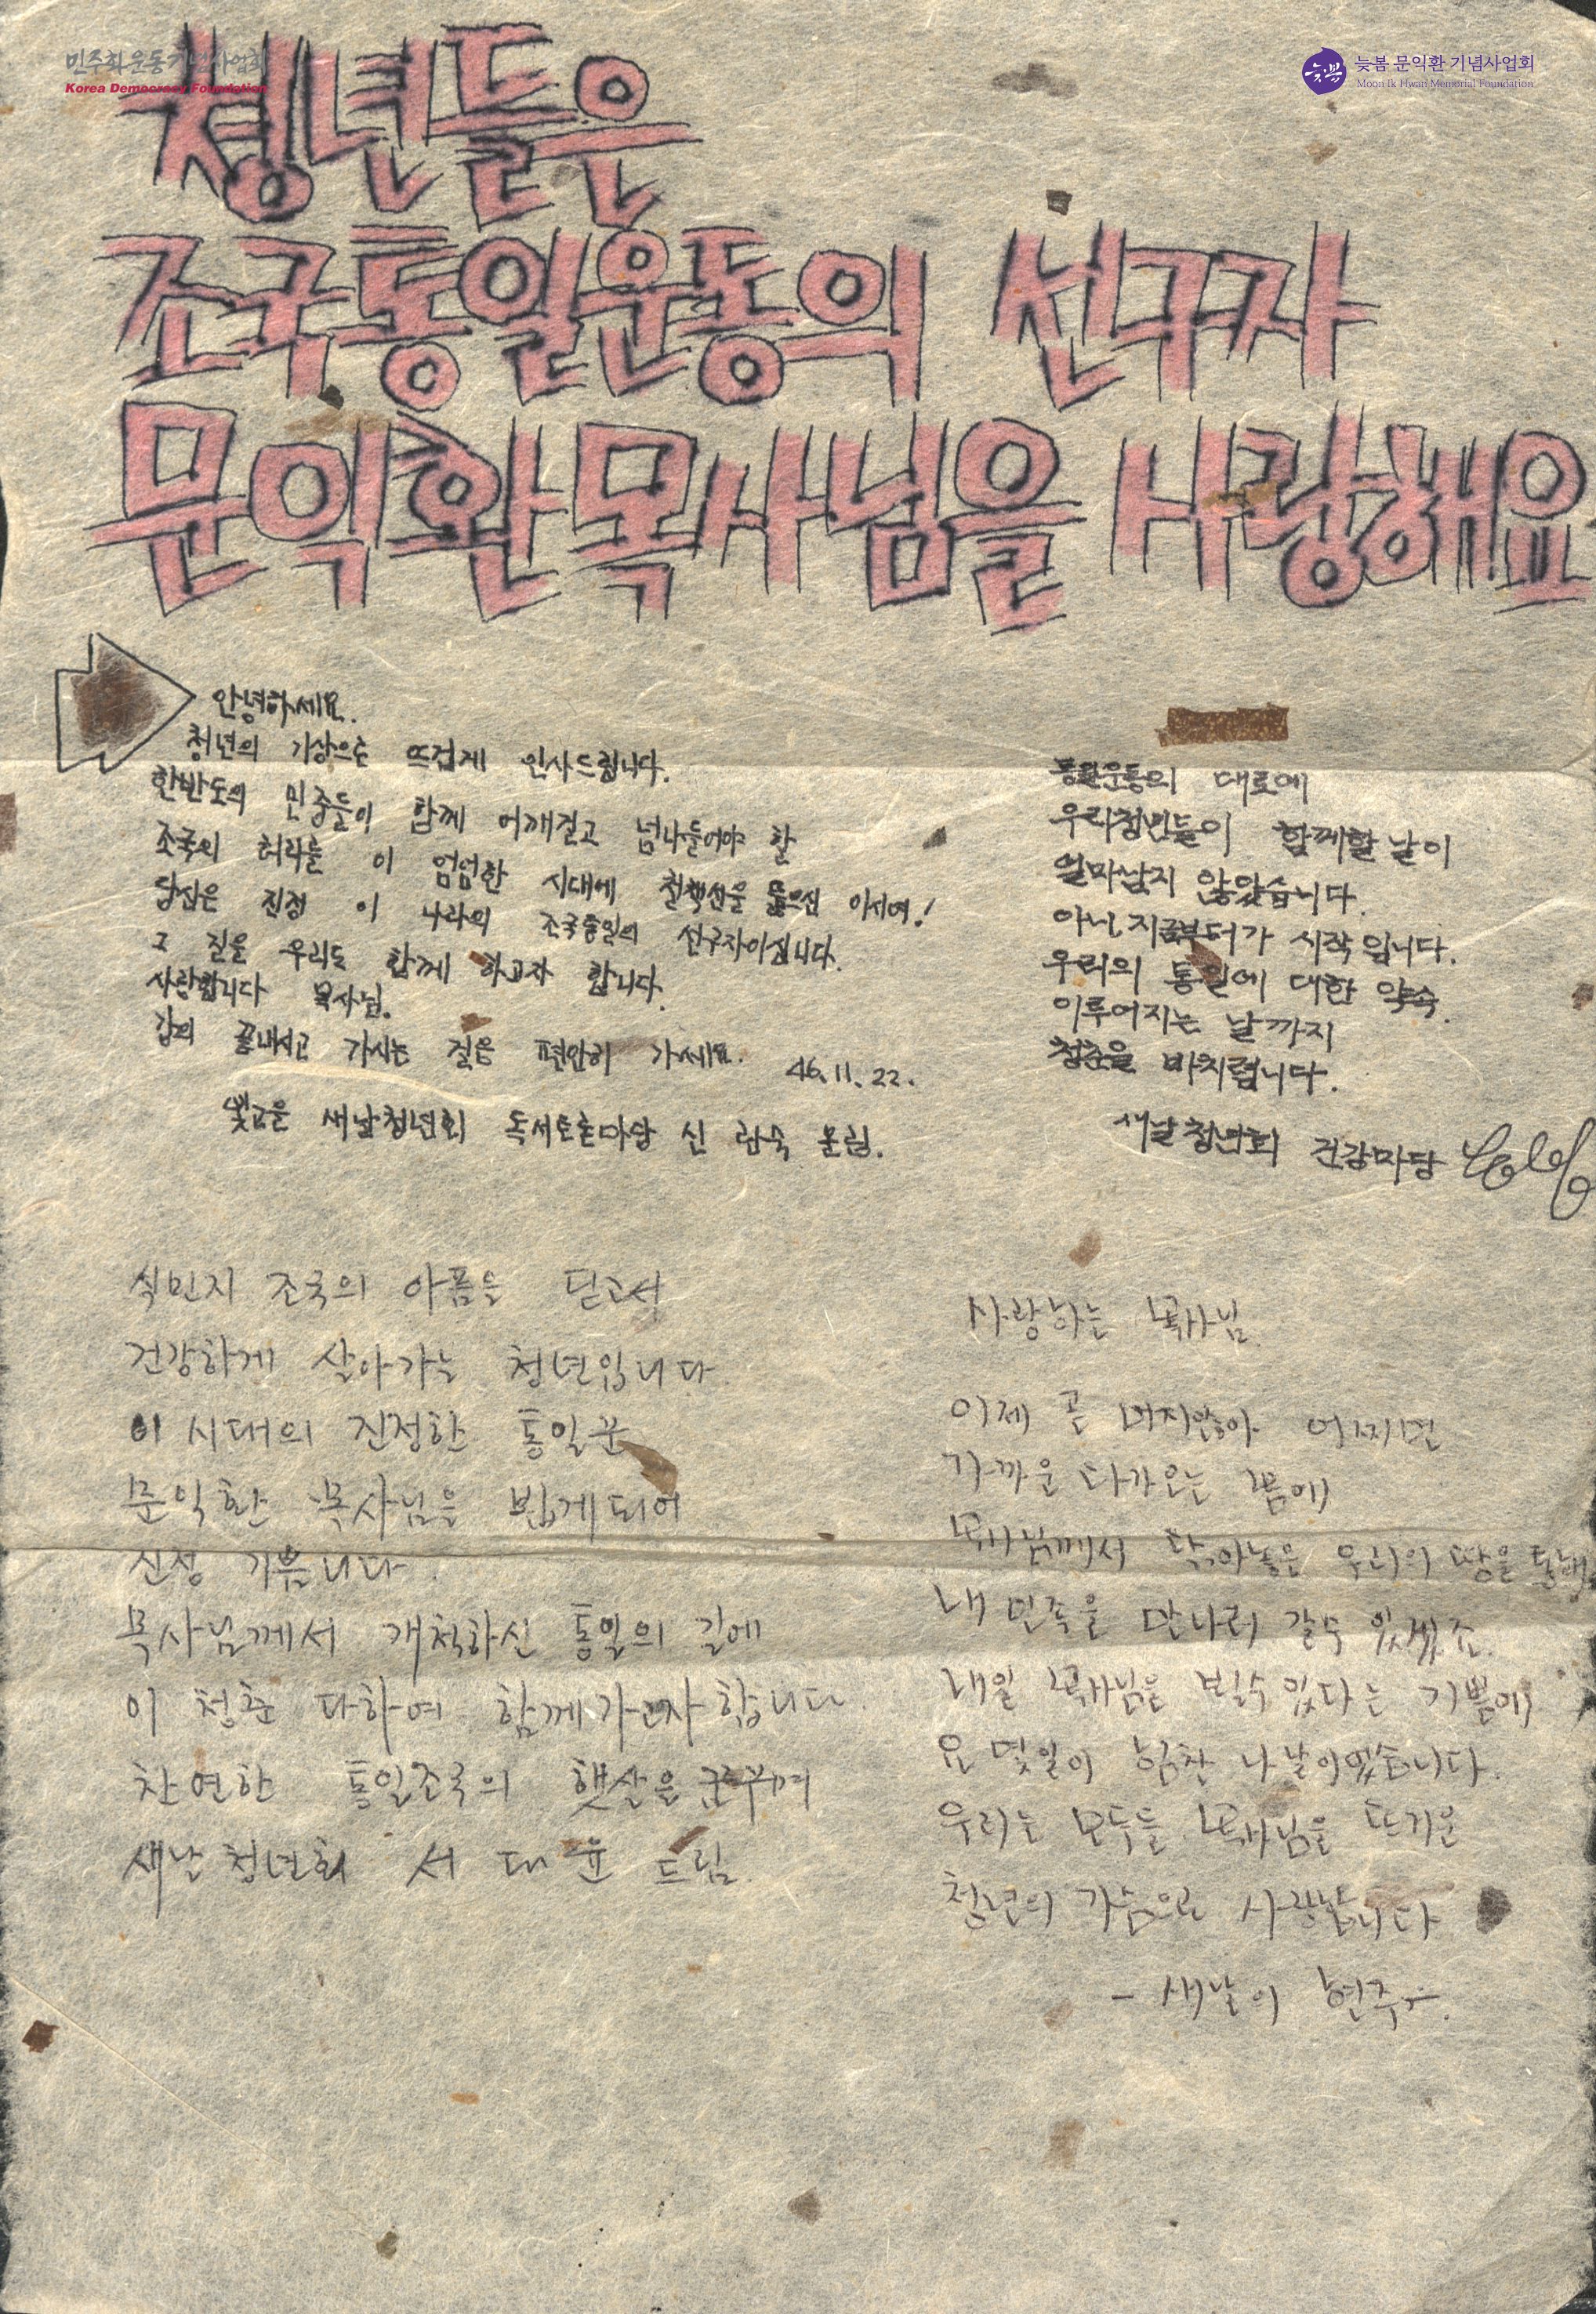 민주화운동기념사업회
Korea Democracy Foundation
늦봄
늦봄 문익환 기념사업회
Moon Ik Hwan Memorial Foundation
청년들은
조국통일운동의 선구자
문익환 목사님을 사랑해요
안녕하세요.
청년의 기상으로 뜨겁게 인사드립니다.
한반도의 민중들이 함께 어깨걸고 넘나들어야 할
조국의 허리를 이 엄엄한 시대에 철책선을 뚫으신 이시여!
당신은 진정 이 나라의 조국통일의 선구자이십니다.
그 길을 우리도 함께 하고자 합니다.
사랑합니다 목사님.
강의 끝내시고 가시는 길은 편안히 가세요. 46.11.22.
빛고을 새날청년회 독서토론마당 신 올림.
통일운동의 대로에
우리청년들이 함께할 날이
얼마남지 않았습니다.
아니, 지금부터가 시작입니다.
우리의 통일에 대한 약속
이루어지는 날까지
청춘을 바치렵니다.
새날청년회 건강마당
식민지 조국의 아픔을 딛고서
건강하게 살아가는 청년입니다.
이 시대의 진정한 통일꾼
문익환 목사님을 뵙게되어
진정 기쁩니다.
목사님께서 개척하신 통일의 길에
이 청춘 다하여 함께가고자 합니다.
찬연한 통일조국의 햇살을 꿈꾸며
새날청년회 서 대 윤 드림.
사랑하는 목사님.
이제 곧 머지않아 어쩌면
가까운 다가오는 봄에
목사님께서 닦아놓은 우리의 땅을 통해
내 민족을 만나러 갈수 있겠죠.
내일 목사님을 뵐수있다는 기쁨에
요 몇일이 힘찬 나날이었습니다.
우리는 모두들 목사님을 뜨거운
청년의 가슴으로 사랑합니다
- 새날이 현주